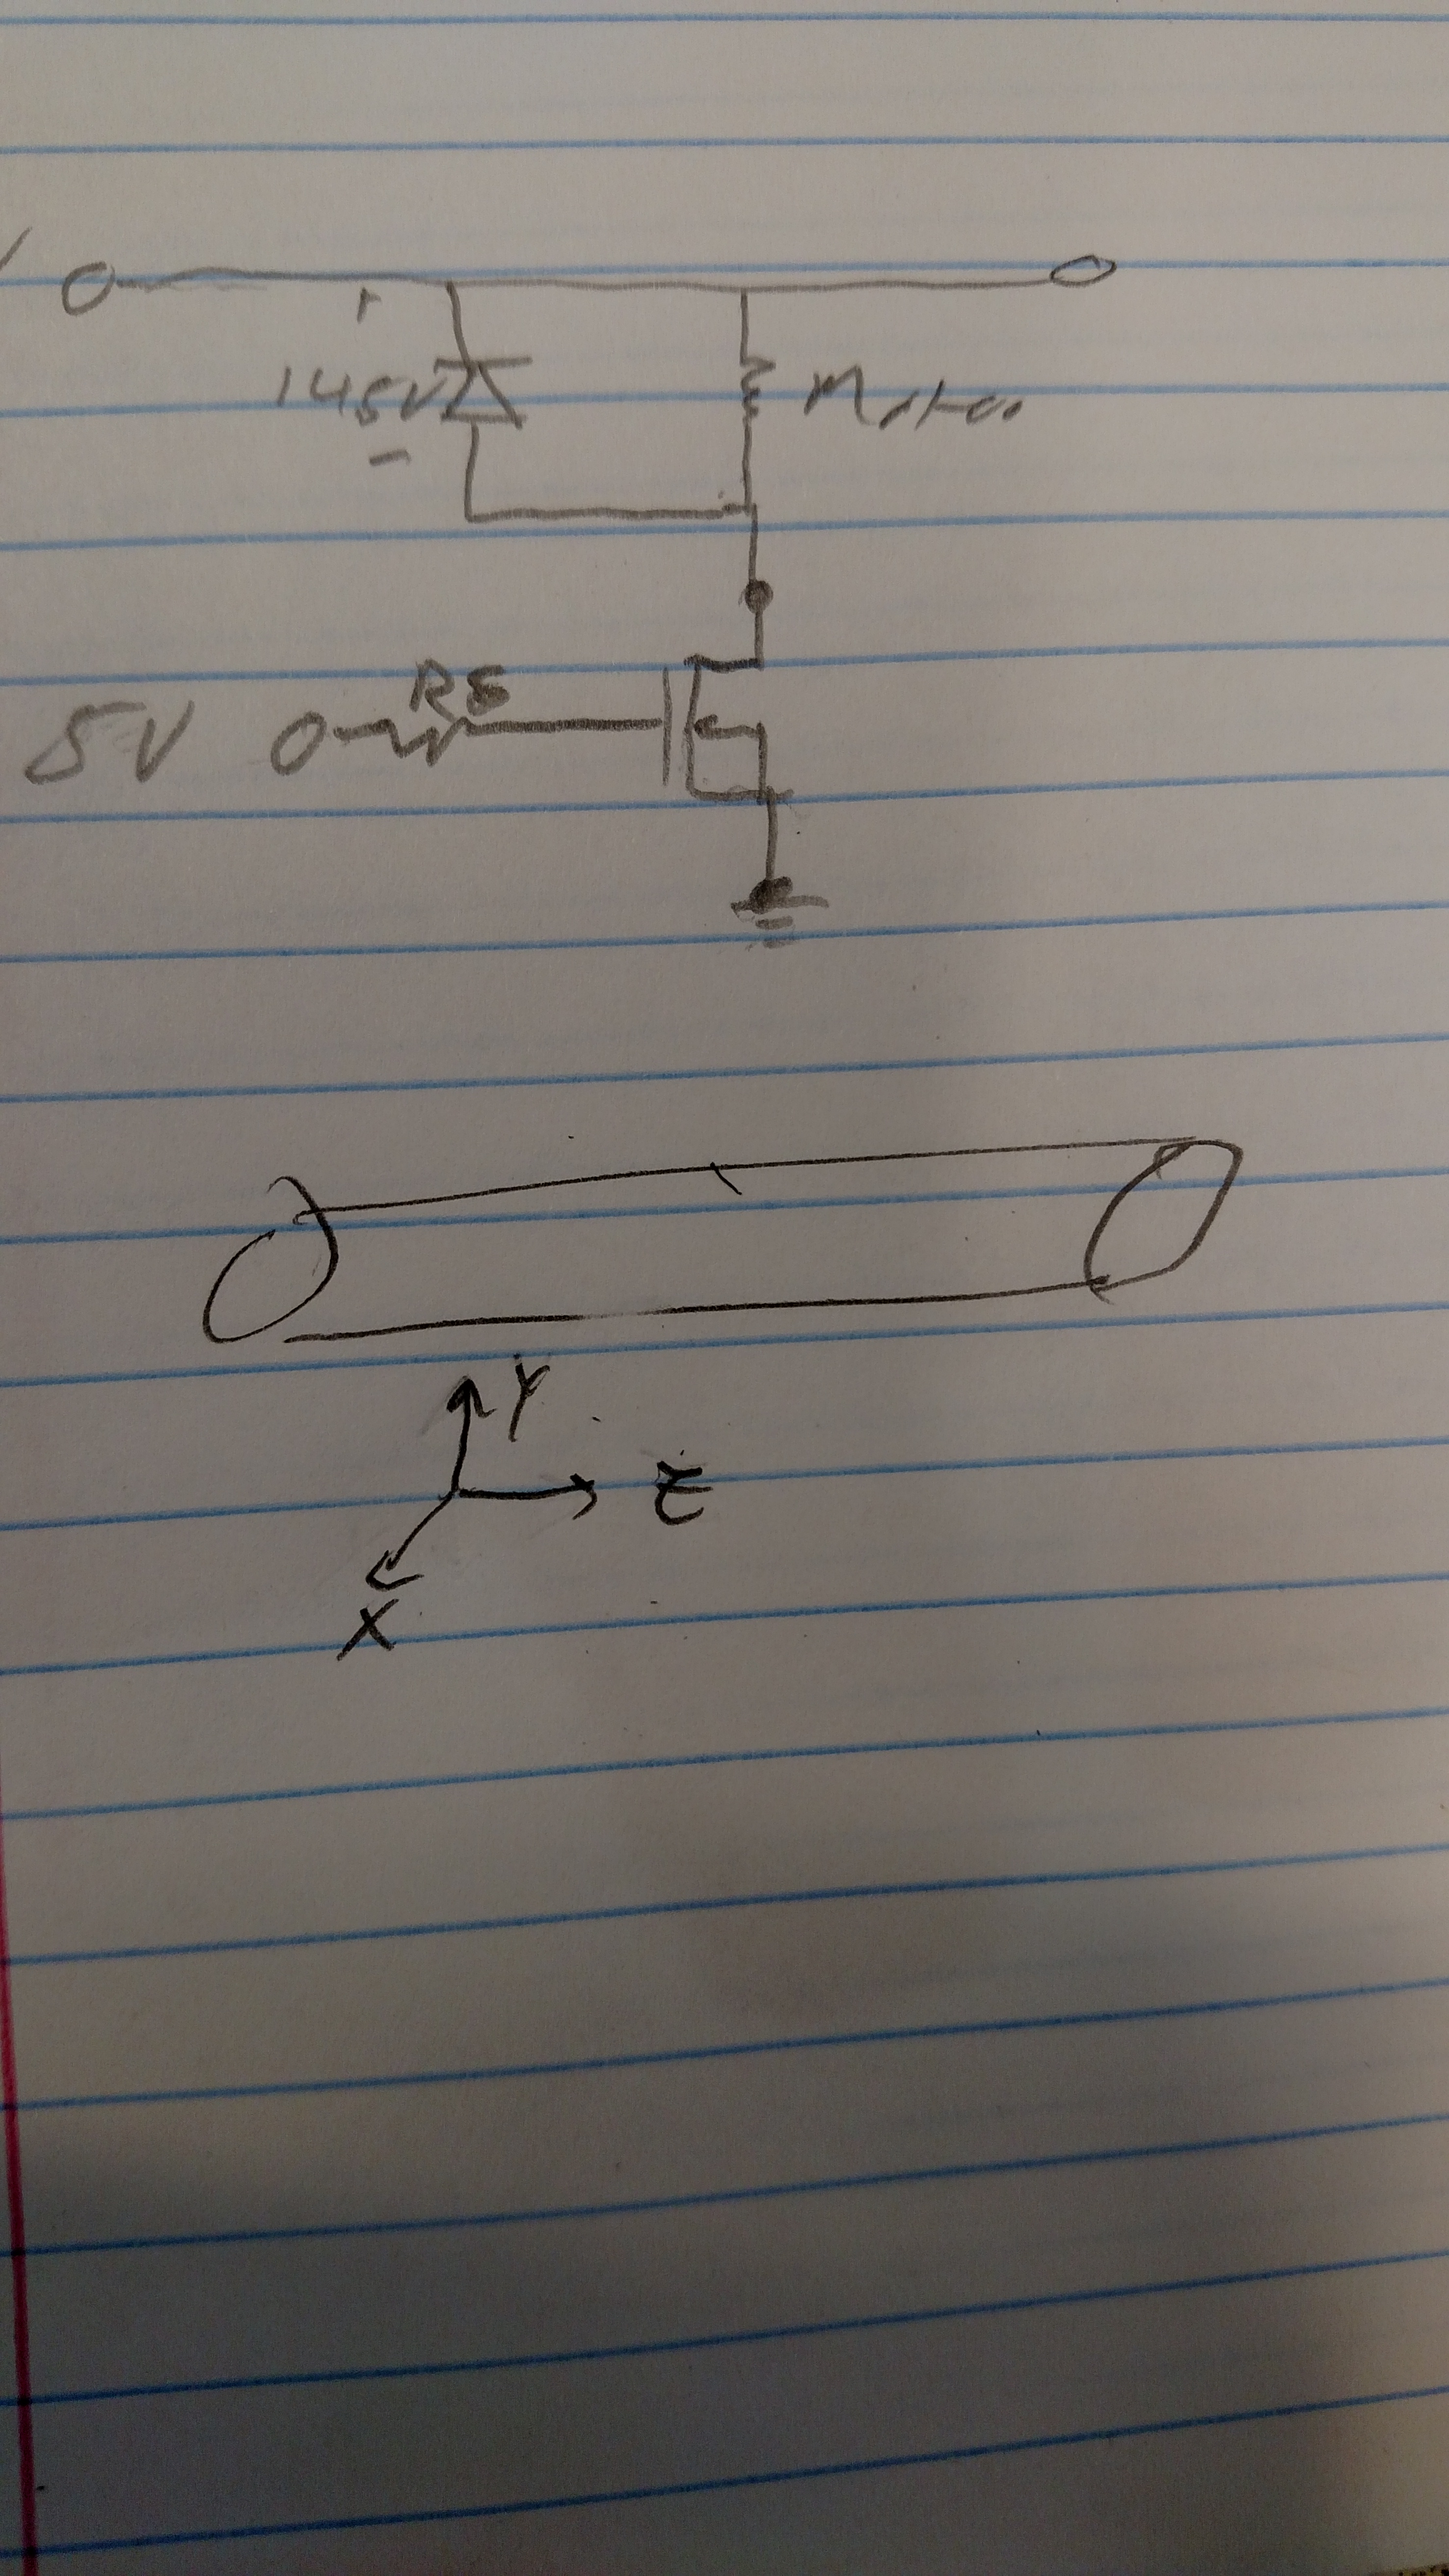 145V
Motor
RG
5V
Y
Z
X